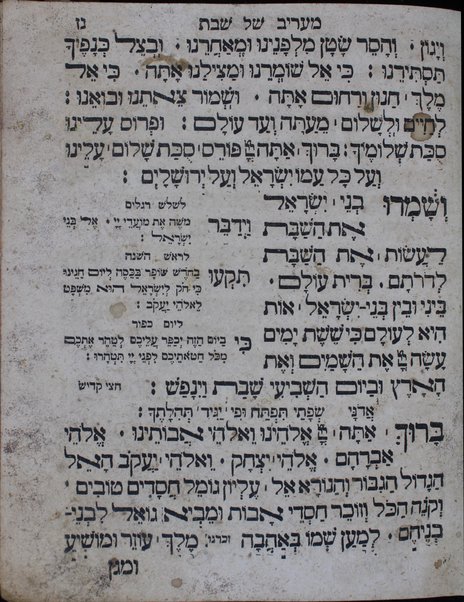 מעריב של שבת נז
וְיָגוֹן · וְהָסֵר שָׂטָן מִלְּפָנֵינוּ וּמֵאַחֲרֵנוּ · וּבְצֵל כְּנָפֶיךָ
תַּסְתִּירֵנוּ : כִּי אֵל שׁוֹמְרֵנוּ וּמַצִּילֵנוּ אָתָּה · כִּי אֵל
מֶלֶךְ · חַנּוּן וְרַחוּם אָתָּה · וּשְׁמוֹר צֵאתֵנוּ וּבוֹאֵנוּ :
לְחַיִּים וּלְשָׁלוֹם · מֵעַתָּה וְעַד עוֹלָם : וּפְרוֹס עָלֵינוּ
סֻכַּת שְׁלוֹמֶיךָ : בָּרוּךְ · אַתָּה יְיָ פּוֹרֵס · סֻכַּת שָׁלוֹם · עָלֵינוּ
וְעַל כָּל עַמּוֹ יִשְׂרָאֵל וְעַל יְרוּשָׁלָיִם :
וְשָׁמְרוּ בְנֵי · יִשְׂרָאֵל
אֶת הַשַּׁבָּת
לַעֲשׂוֹת · אֶת הַשַּׁבָּת
לְדֹרֹתָם · בְּרִית עוֹלָם ·
בֵּינִי וּבֵין בְּנֵי · יִשְׂרָאֵל · אוֹת
הִיא לְעוֹלָם כִּי שֵׁשֶׁת יָמִים
עָשָׂה יְיָ אֶת הַשָּׁמַיִם וְאֶת
הָאָרֶץ וּבַיּוֹם הַשְּׁבִיעִי שָׁבַת וַיִּנָּפַשׁ :
לשלש רגלים
וַיְדַבֵּר משֶׁה אֶת מוֹעֲדֵי יְיָ · אֶל בְּנֵי
יִשְׂרָאֵל :
לראש השנה
תִּקְעוּ בַחֹדֶשׁ שׁוֹפָר בַּכֶּסֶה לְיוֹם חַגֵּינוּ
כִּי חֹק לְיִשְׂרָאֵל הוּא מִשְׁפָּט
לֵאלֹהֵי יַעֲקֹב :
ליום כפור
כִּי בַיּוֹם הַזֶּה יְכַפֵּר עֲלֵיכֶם לְטַהֵר אֶתְכֶם
מִכֹּל חַטֹּאתֵיכֶם לִפְנֵי יְיָ תִּטְהָרוּ :
חצי קדיש
אֲדֹנָי שְׂפָתַי תִּפְתָּח וּפִי יַגִּיד תְּהִלָּתֶךָ :
בָּרוּךְ אַתָּה · יְיָ אֱלֹהֵינוּ וֵאלֹהֵי אֲבוֹתֵינוּ · אֱלֹהֵי
אַבְרָהָם · אֱלֹהֵי יִצְחָק · וֵאלֹהֵי יַעֲקֹב הָאֵל
הַגָּדוֹל הַגִּבּוֹר וְהַנּוֹרָא אֵל · עֶלְיוֹן גּוֹמֵל חֲסָדִים טוֹבִים ·
וְקוֹנֵה הַכֹּל וְזוֹכֵר חַסְדֵי אָבוֹת וּמֵבִיא גוֹאֵל לִבְנֵי·
בְנֵיהֶם · לְמַעַן שְׁמוֹ בְּאַהֲבָה זכרנו: מֶלֶךְ · עוֹזֵר וּמוֹשִׁיעַ
ומגן